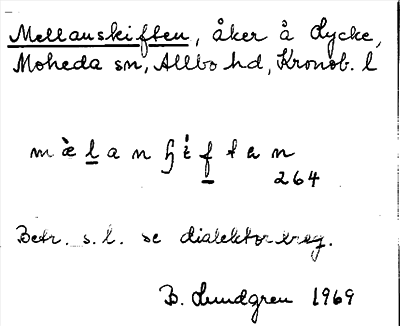 Mellanskiften, åker å Lycke,
Moheda sn, Allbo hd, Kronob. l
mὲlanɧiftan
264
Betr. s.l. se dialektortreg.
B. Lundgren 1969